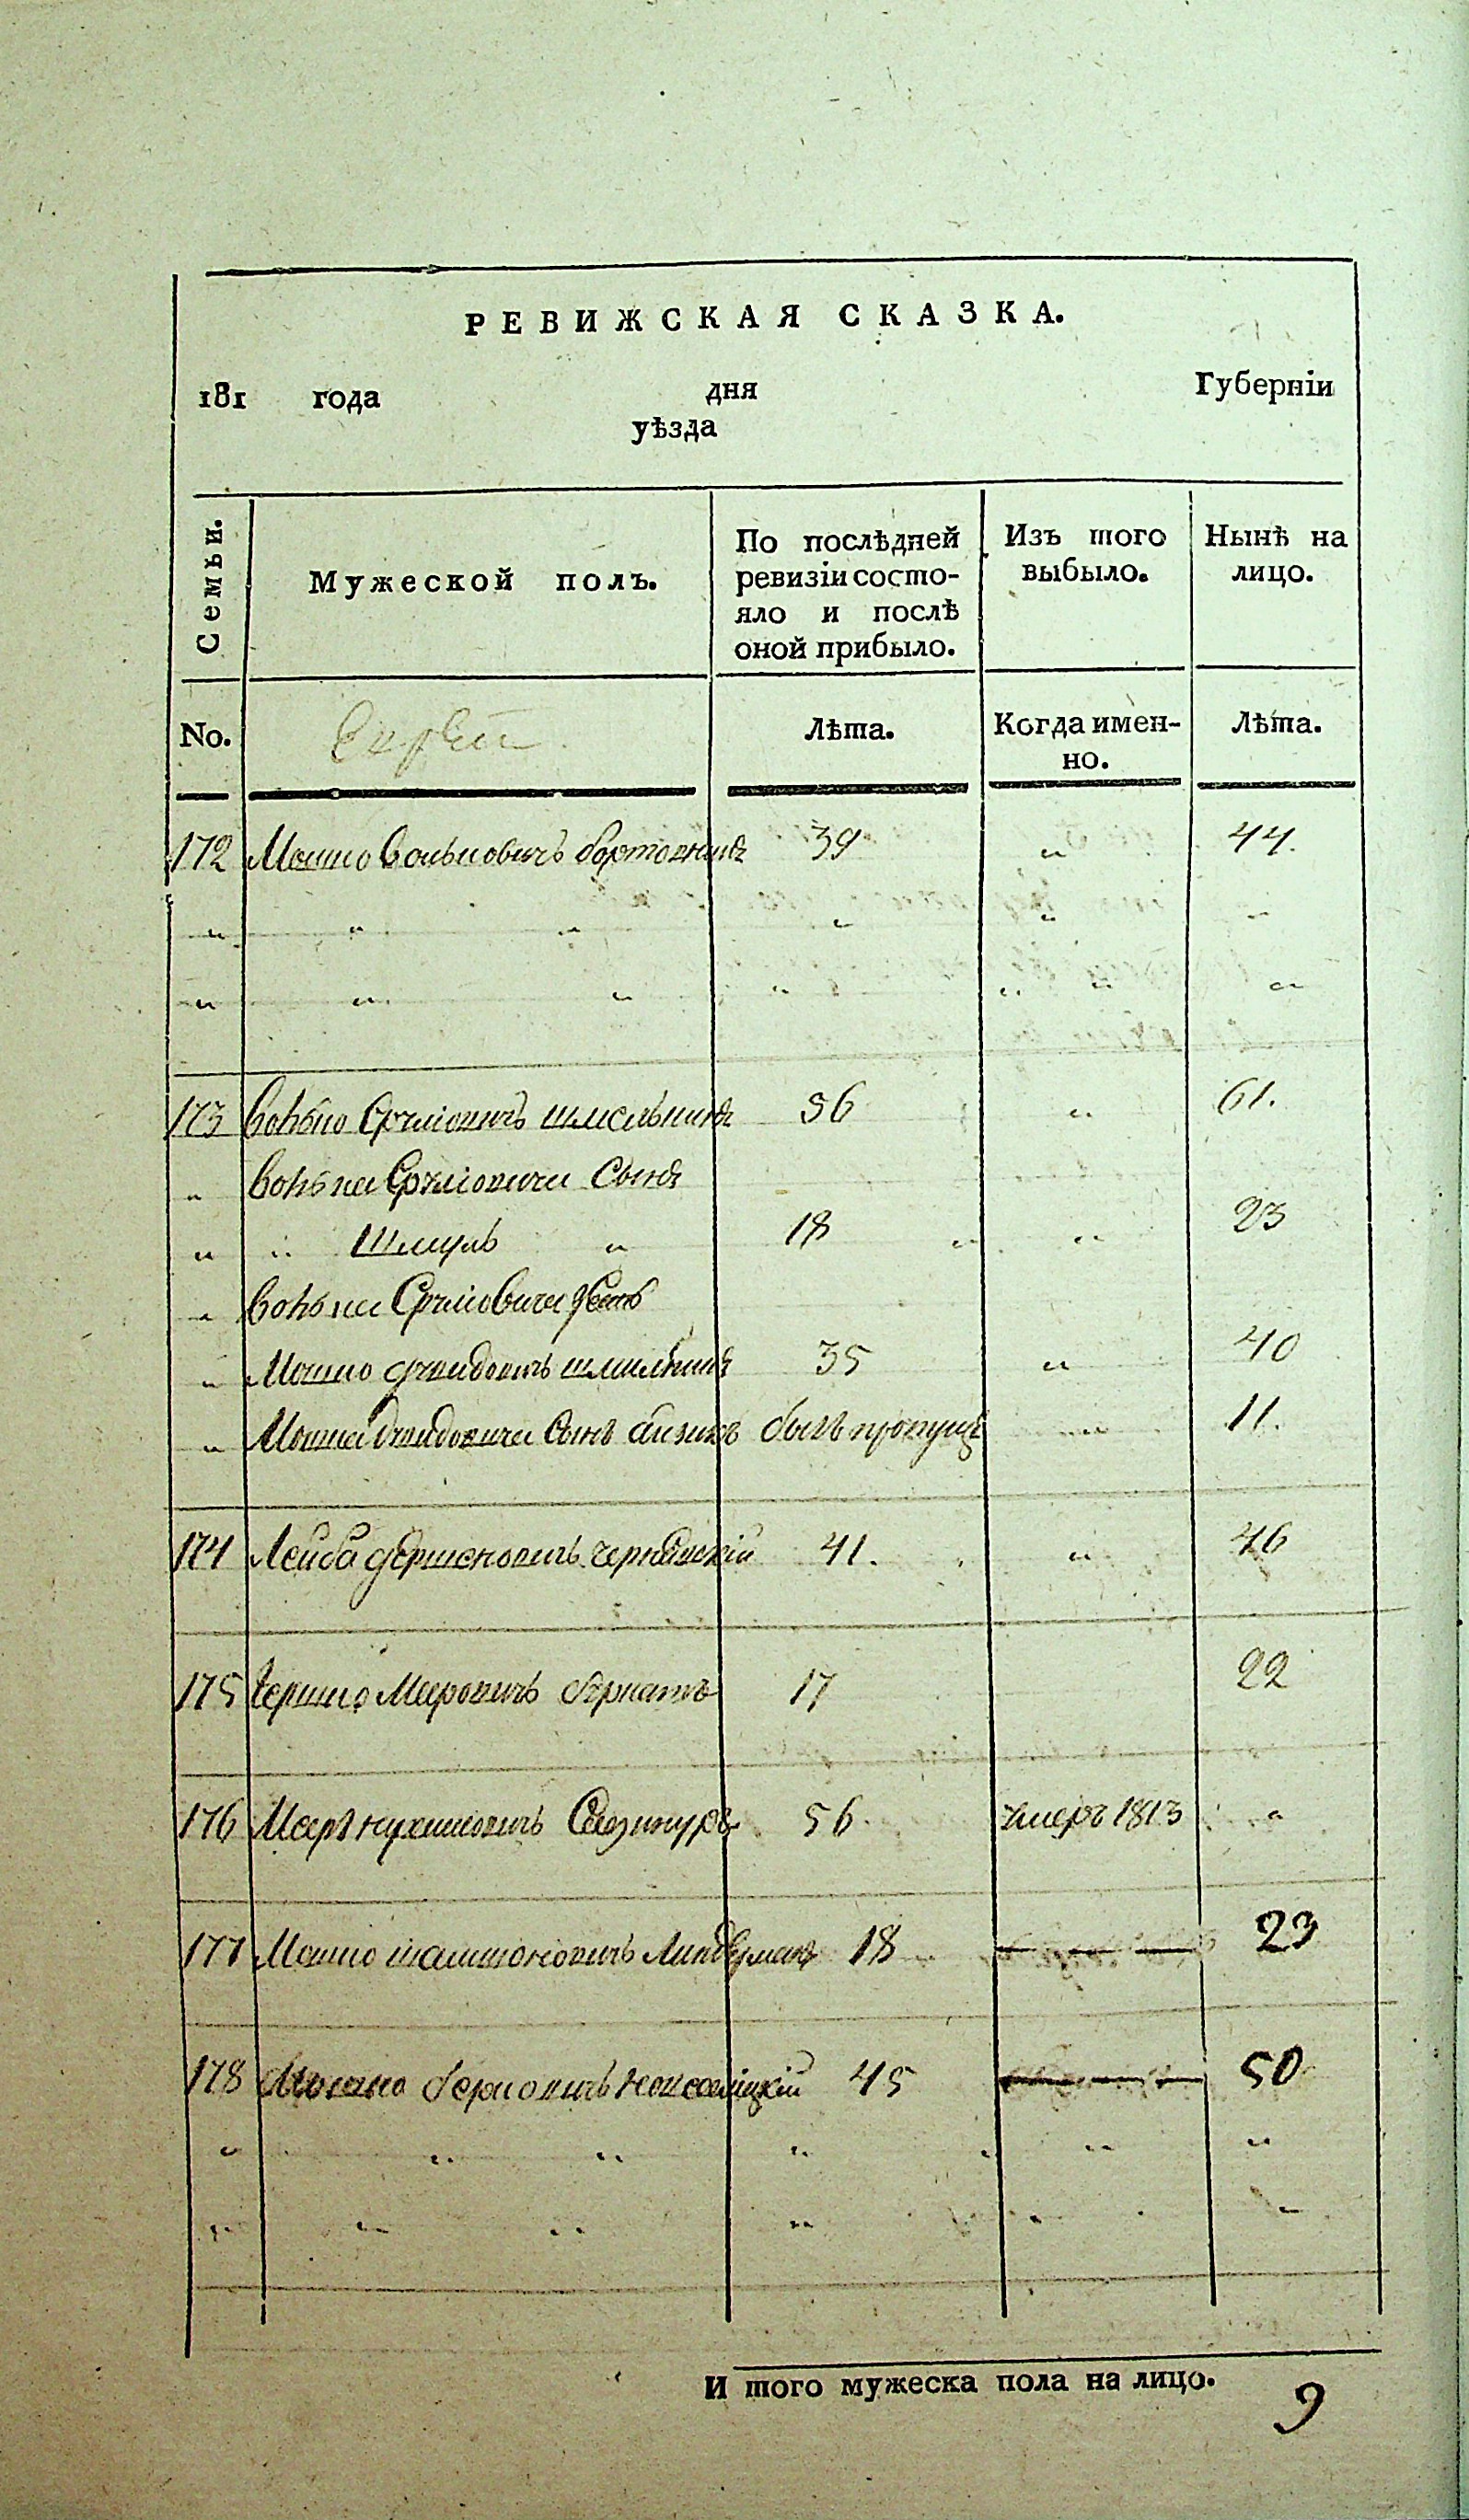 РЕВИЖСКАЯ СКАЗКА.
181 года дня Губерніи
уѣзда
Семьи. Мужеской полъ. По послѣдней ревизіи состояло и послѣ оной прибыло. Изъ того выбыло. Нынѣ на лицо.
No. Евреи Лѣта. Когда именно. Лѣта.
172 Мошко Волькович 39 „ 44.
„ „ „ „ „ „
„ „ „ „ „ „ „
173 Волько Сруліовичъ шмельникъ 56 „ 61.
„ Волька Сруліовича сынъ
„ „ Шмуль „ 18 „ „ 23
„ Волька Сруліовича зять
„ Мошко 35 „ 40
„ Мошка сынъ Айзикъ былъ пропущ „ 11.
174 Лейба Гершковичъ Чернявскій 41. „ 46
175 Гершко Мееровичъ 17 22
176 Меер 56 умеръ 1813 „
177 Мошко Шамшоновичъ Линдерманъ 18 — — — 23
178 Мошко Берковичъ Новоселіцкій 45 — — — 50
„ „ „ „ „ „ „
„ „ „ „ „ „
И того мужеска пола на лицо. 9